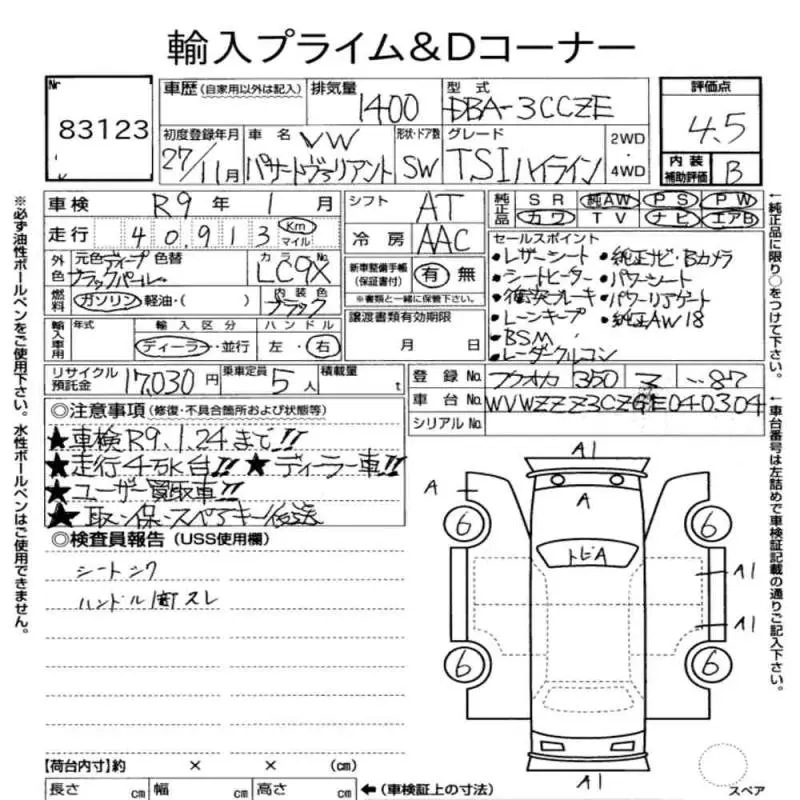 輸入プライム&Dコーナー
Nr
83123
車歴 (自家用以外は記入)
排気量
1400
型式
DBA-3CCZE
評価点
4.5
初度登録年月
27/11月
車名 VW
パサートヴァリアント
形状・ドア数
SW
グレード
TSIハイライン
2WD
・
4WD
内装
補助評価
B
※必ず油性ボールペンをご使用下さい。水性ボールペンはご使用できません。
車検 R9年1月
シフト AT
純正品
SR 純AW PS PW
カワ TV ナビ エアB
←純正品に限り○をつけて下さい。
走行 40,913 Km マイル
冷房 AAC
セールスポイント
・レザーシート ・純正ナビ・Bカメラ
・シートヒーター ・パワーシート
・衝突ブレーキ ・パワーリアゲート
・レーンキープ ・純正AW18
・BSM
・レーダークルコン
外色
元色 ディープ 色替
ブラックパール
カラーNo.
LC9X
新車整備手帳
(保証書付)
有 無
※書類と一緒に保管下さい。
燃料
ガソリン・軽油・( )
内装色
ブラック
譲渡書類有効期限
月 日
輸入車用
年式
輸入区分
ハンドル
ディーラー・並行
左・右
リサイクル
預託金
17,030円
乗車定員 5人
積載量 t
登録No. フクオカ 350 ヌ ・・87
車台No. WVWZZZ3CZGE040304
シリアルNo.
←車台番号は左詰めで車検証記載の通りご記入下さい。
◎注意事項 (修復・不具合箇所および状態等)
★車検R9.1.24まで!!
★走行4万K台!! ★ディーラー車!!
★ユーザー買取車!!
★取・保・スペアキー後送
◎検査員報告 (USS使用欄)
シートシワ
ハンドル スレ
A1
A
A
6
6
トビA
A1
A1
6
6
A1
スペア
【荷台内寸】約 × × (cm)
長さ cm 幅 cm 高さ cm
← (車検証上の寸法)